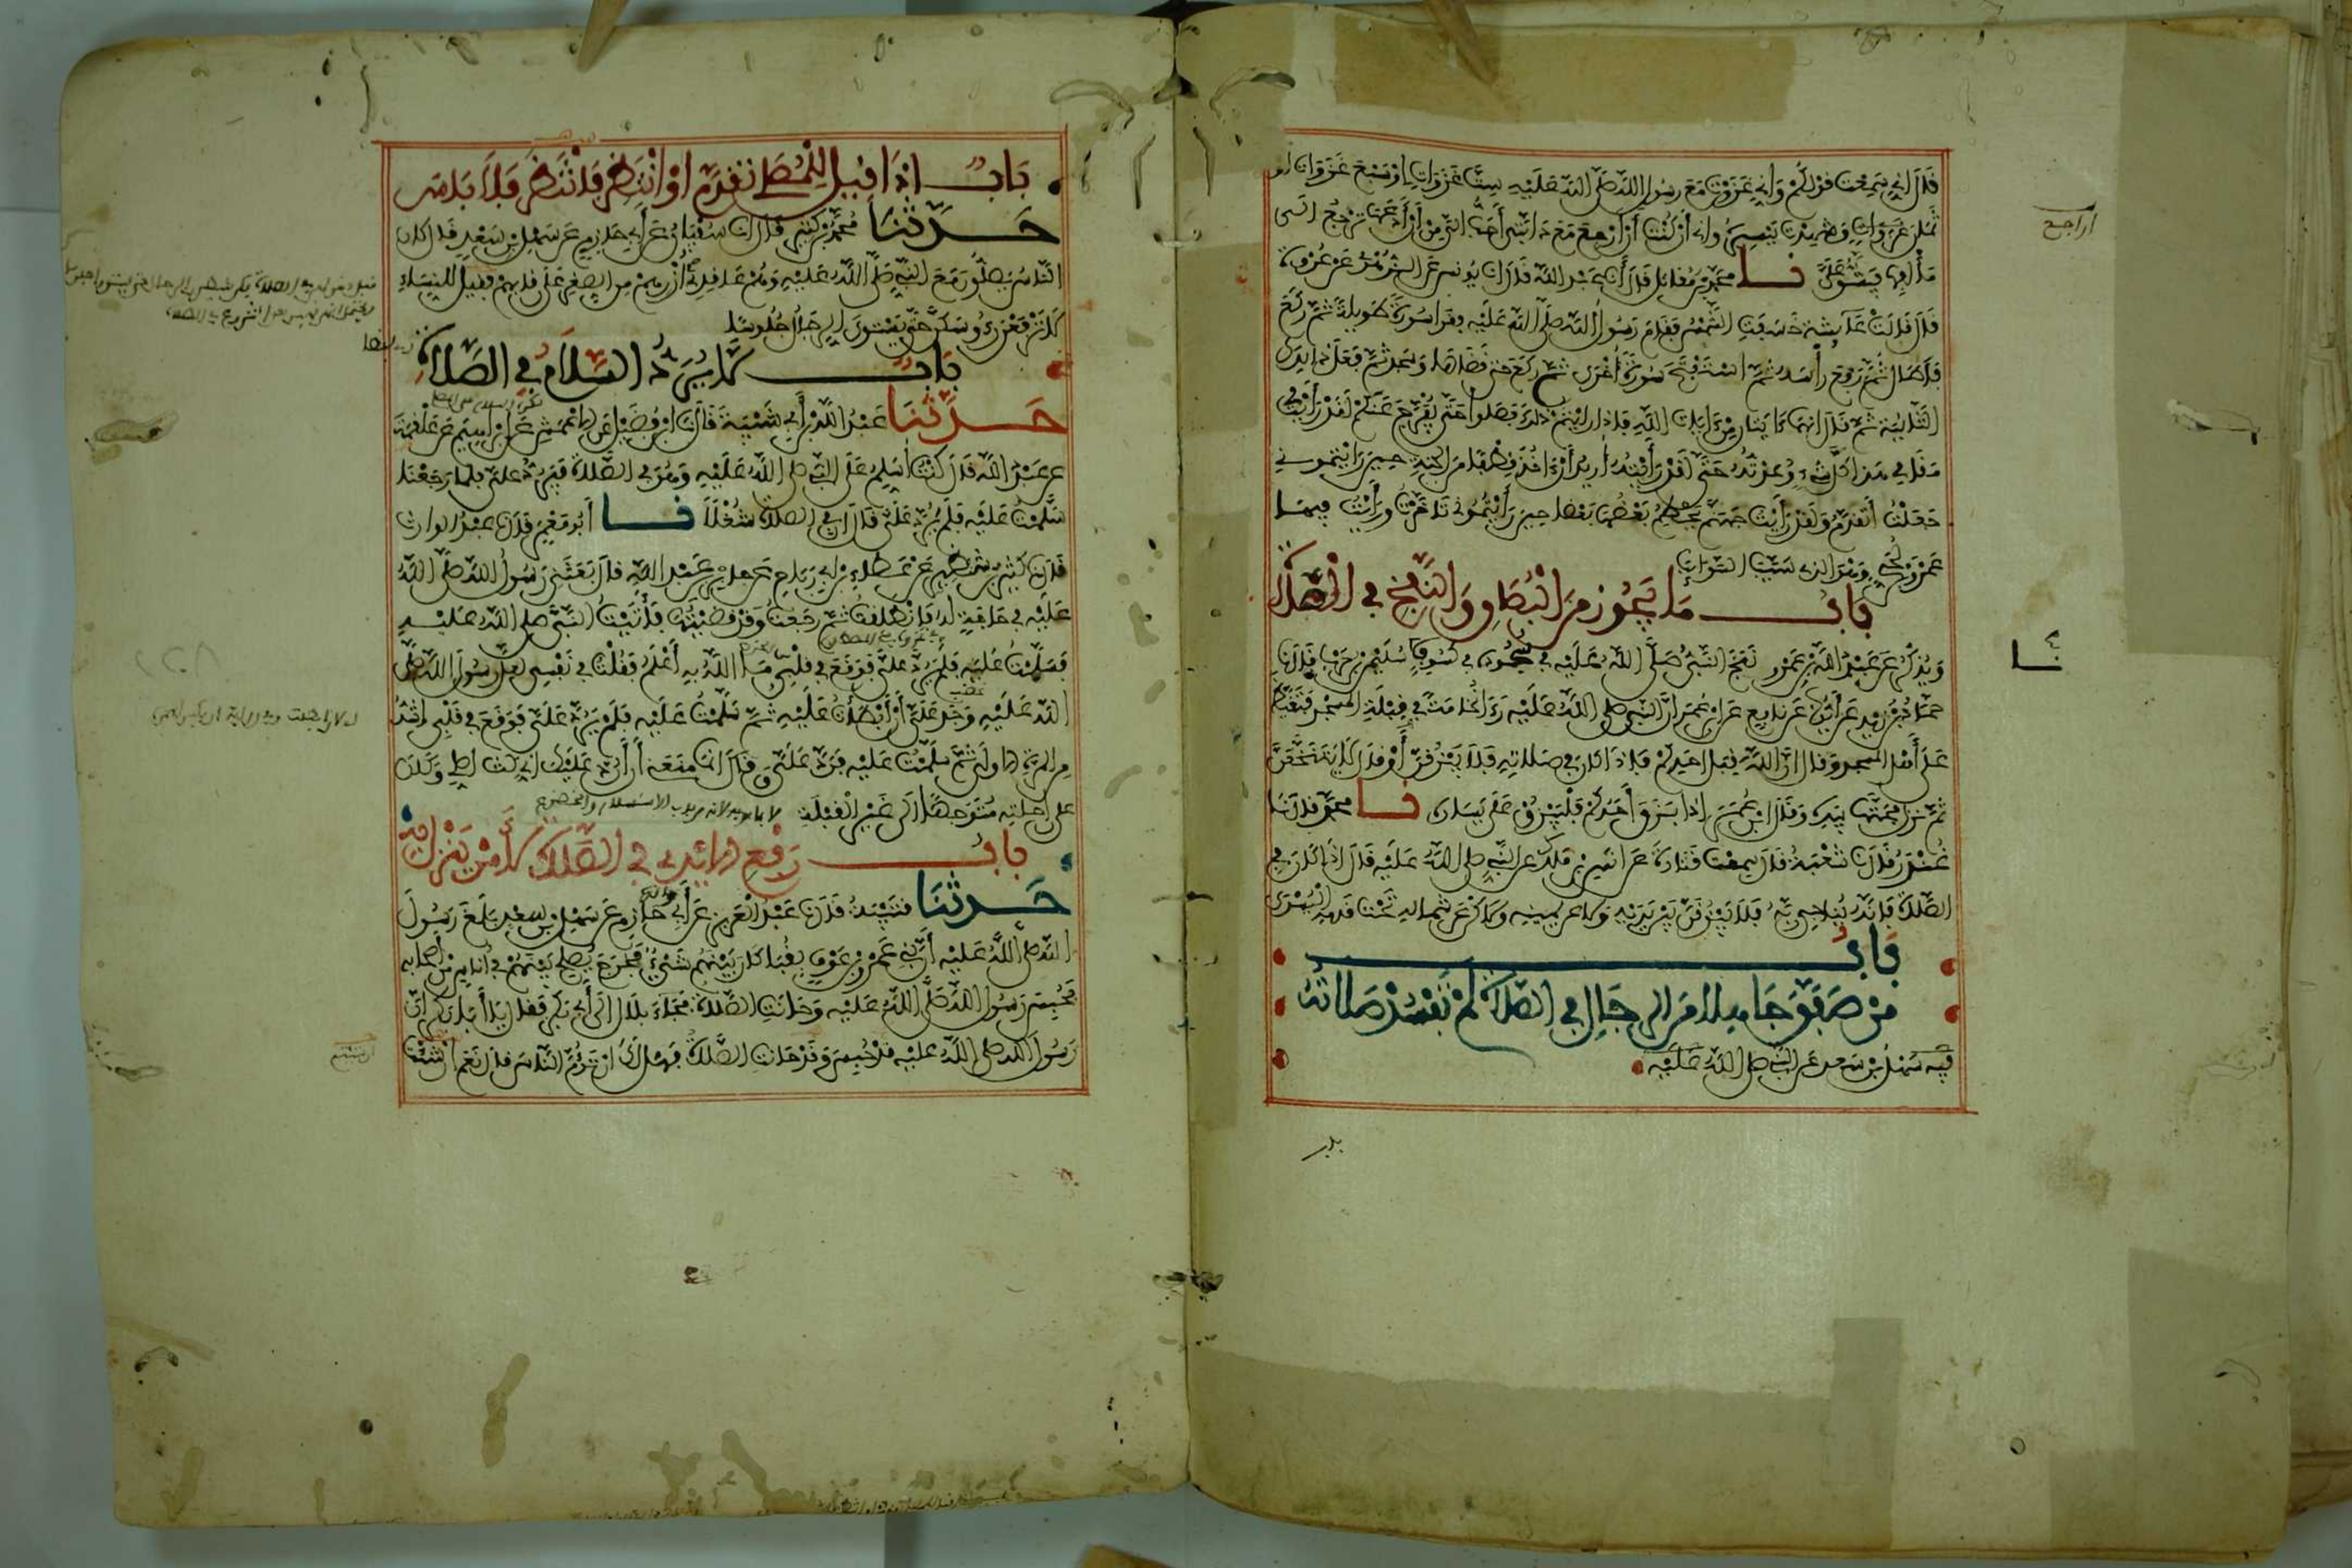 قال اني سمعت قولكم واني غزوت مع رسول الله صلى الله عليه ست غزوات او سبع غزوات او
ثمان غزوات وشهدت تيسيره واني ان كنت ان ارجع مع دابتي احب الي من ان ادعها ترجع الى
مألفها فيشق علي نا محمد بن مقاتل قال انا عبد الله قال انا يونس عن الزهري عن عروة
قال قالت عائشة خسفت الشمس فقام رسول الله صلى الله عليه فقرا سورة طويلة ثم ركع
فاطال ثم رفع رأسه ثم استفتح سورة اخرى ثم ركع حتى قضاها وسجد ثم فعل ذلك في
الثانية ثم قال انهما ءايتان من ءايات الله فاذا رايتم ذلك فصلوا حتى يفرج عنكم لقد رأيت في
مقامي هذا كل شيء وعدته حتى لقد رأيته اريد أن ءاخذ قطفا من الجنة حين رايتموني
جعلت أتقدم ولقد رأيت جهنم يحطم بعضها بعضا حين رأيتموني تاخرت ورأيت فيها
عمرو بن لحي وهو الذي سيب السوائب
باب ما يجوز من البصاق والنفخ في الصلاة
ويذكر عن عبد الله بن عمرو نفخ النبي صلى الله عليه في سجوده في كسوف نا سليمن بن حرب قال نا
حماد بن زيد عن أيوب عن نافع عن ابن عمر ان النبي صلى الله عليه رءا نخامة في قبلة المسجد فتغيظ
على أهل المسجد وقال ان الله قبل احدكم فاذا كان في صلاته فلا يبزقن أو قال لا يتنخعن
ثم نزل فحتها بيده وقال ابن عمر اذا بزق أحدكم فليبزق على يساره نا محمد قال نا
غندر قال نا شعبة قال سمعت قتادة عن انس بن ملك عن النبي صلى الله عليه قال اذا كان في
الصلاة فانه يناجي ربه فلا يبزقن بين يديه ولا عن يمينه ولاكن عن شماله تحت قدمه اليسرى
باب
من صفق جاهلا من الرجال في الصلاة لم تفسد صلاته
فيه سهل بن سعد عن النبي صلى الله عليه
باب اذا قيل للمصلي تقدم او انتظر فانتظر فلا باس
حدثنا محمد بن كثير قال انا سفيان عن أبي حازم عن سهل بن سعد قال كان
الناس يصلون مع النبي صلى الله عليه وهم عاقدي أزرهم من الصغر على رقابهم فقيل للنساء
لا ترفعن رءوسكن حتى يستوي الرجال جلوسا
باب لا يرد السلام في الصلاة
حدثنا عبد الله بن أبي شيبة قال نا ابن فضيل عن الاعمش عن ابراهيم عن علقمة
عن عبد الله قال كنت أسلم على النبي صلى الله عليه وهو في الصلاة فيرد علي فلما رجعنا
سلمت عليه فلم يرد علي قال ان في الصلاة شغلا نا أبو معمر قال نا عبد الوارث
قال نا كثير بن شنظير عن عطاء بن أبي رباح عن جابر بن عبد الله قال بعثني رسول الله صلى الله
عليه في حاجة له فانطلقت ثم رجعت وقد قضيتها فأتيت النبي صلى الله عليه
فسلمت عليه فلم يرد علي فوقع في قلبي ما الله به أعلم فقلت في نفسي لعل رسول الله صلى
الله عليه وجد علي أن أبطأت عليه ثم سلمت عليه فلم يرد علي فوقع في قلبي اشد
من المرة الاولى ثم سلمت عليه فرد علي وقال انما منعني أن أرد عليك اني كنت اصلي وكان
على راحلته متوجها الى غير القبلة
باب رفع الايدي في الصلاة لأمر ينزل به
حدثنا قتيبة قال نا عبد العزيز عن أبي حازم عن سهل بن سعد بلغ رسول
الله صلى الله عليه أن بني عمرو بن عوف بقباء كان بينهم شيء فخرج يصلح بينهم في أناس من أصحابه
فحبس رسول الله صلى الله عليه وحانت الصلاة فجاء بلال الى أبي بكر فقال يا أبا بكر ان
رسول الله صلى الله عليه قد حبس وقد حانت الصلاة فهل لك ان تؤم الناس قال نعم ان شئت